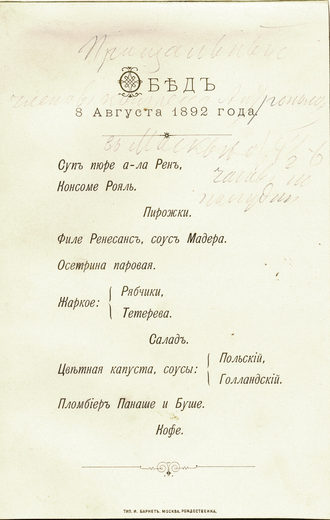 ОБѢДЪ
8 Августа 1892 года.
Супъ пюре а-ла Ренъ,
Консоме Рояль.
Пирожки.
Филе Ренесансъ, соусъ Мадера.
Осетрина паровая.
Жаркое: { Рябчики,
Тетерева.
Саладъ.
Цвѣтная капуста, соусы: { Польскій,
Голландскій.
Пломбіеръ Панаше и Буше.
Кофе.
ТИП. И. БАРНЕТЪ. МОСКВА, РОЖДЕСТВЕНКА.